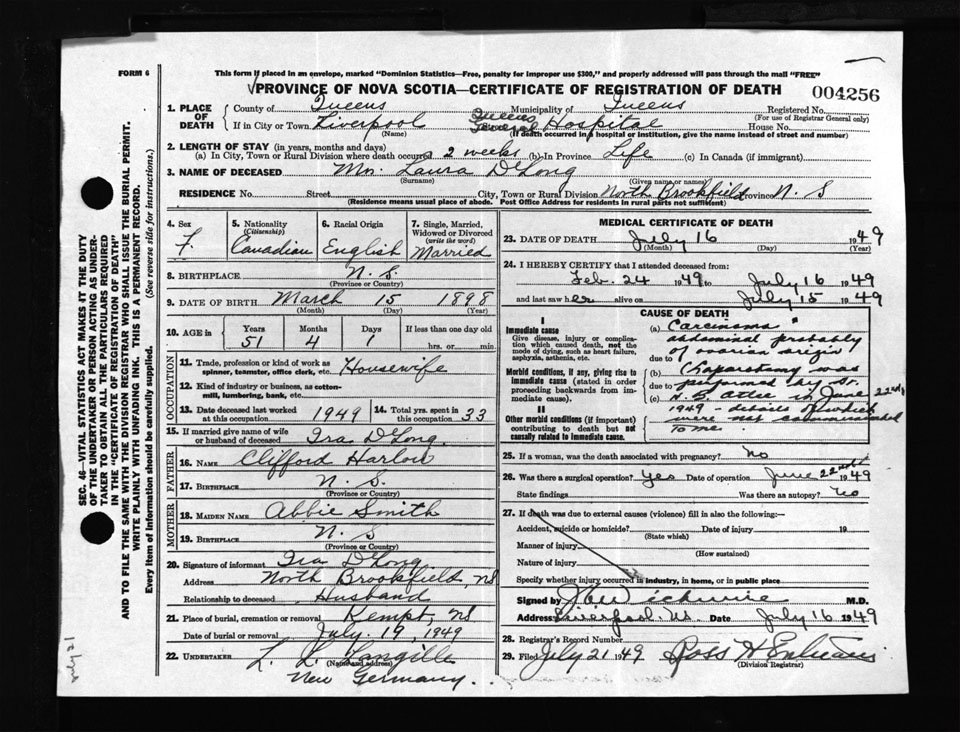 FORM 6
This form if placed in an envelope, marked "Dominion Statistics—Free, penalty for improper use $300," and properly addressed will pass through the mail "FREE"
PROVINCE OF NOVA SCOTIA—CERTIFICATE OF REGISTRATION OF DEATH
004256
1. PLACE OF DEATH
County of Queens Municipality of Queens Registered No.
(For use of Registrar General only)
If in City or Town Liverpool Queens General Hospital House No.
(Name) (If death occurred in a hospital or institution, give the name instead of street and number)
2. LENGTH OF STAY (in years, months and days)
(a) In City, Town or Rural Division where death occurred 2 weeks (b) In Province Life (c) In Canada (if immigrant)
3. NAME OF DECEASED Mrs. Laura DeLong
(Surname) (Given name or names)
RESIDENCE No. Street City, Town or Rural Division North Brookfield Province N. S
(Residence means usual place of abode. Post Office Address for residents in rural parts not sufficient)
4. Sex F.
5. Nationality (Citizenship) Canadian
6. Racial Origin English
7. Single, Married, Widowed or Divorced (write the word) Married
8. BIRTHPLACE N. S.
(Province or Country)
9. DATE OF BIRTH March 15 1898
(Month) (Day) (Year)
10. AGE in Years Months Days If less than one day old
51 4 1 hrs. or min.
OCCUPATION
11. Trade, profession or kind of work as spinner, teamster, office clerk, etc. Housewife
12. Kind of industry or business, as cotton-mill, lumbering, bank, etc.
13. Date deceased last worked at this occupation 1949
14. Total yrs. spent in this occupation 33
15. If married give name of wife or husband of deceased Ira DeLong.
FATHER
16. NAME Clifford Harlow
17. BIRTHPLACE N. S.
(Province or Country)
MOTHER
18. MAIDEN NAME Abbie Smith
19. BIRTHPLACE N. S
(Province or Country)
20. Signature of informant Ira DeLong
Address North Brookfield, NS
Relationship to deceased Husband
21. Place of burial, cremation or removal Kempt, NS.
Date of burial or removal July. 19, 1949
22. UNDERTAKER L. L. Langille
(Name and address)
New Germany.
MEDICAL CERTIFICATE OF DEATH
23. DATE OF DEATH July 16 1949
(Month) (Day) (Year)
24. I HEREBY CERTIFY that I attended deceased from:
Feb. 24 1949 to July 16 1949
and last saw her alive on July 15 1949
CAUSE OF DEATH
I
Immediate cause
Give disease, injury or complication which caused death, not the mode of dying, such as heart failure, asphyxia, asthenia, etc.
Morbid conditions, if any, giving rise to immediate cause (stated in order proceeding backwards from immediate cause).
II
Other morbid conditions (if important) contributing to death but not causally related to immediate cause.
(a) Carcinoma
abdominal probably
due to of ovarian origin
(b) Laparotomy was
due to performed by Dr.
(c) H. B. Atlee in June 22nd
1949 - details of which
were not communicated
to me.
25. If a woman, was the death associated with pregnancy? No
26. Was there a surgical operation? Yes Date of operation June 22nd 1949
State findings Was there an autopsy? No
27. If death was due to external causes (violence) fill in also the following:—
Accident, suicide or homicide? Date of injury 19
(State which)
Manner of injury
(How sustained)
Nature of injury
Specify whether injury occurred in industry, in home, or in public place
Signed by M.D.
Address Liverpool, N.S. Date July 16 1949
28. Registrar's Record Number
29. Filed July 21 1949 Ross H
(Division Registrar)
SEC. 46—VITAL STATISTICS ACT MAKES IT THE DUTY
OF THE UNDERTAKER OR PERSON ACTING AS UNDER-
TAKER TO OBTAIN ALL THE PARTICULARS REQUIRED
IN THE "CERTIFICATE OF REGISTRATION OF DEATH"
AND TO FILE THE SAME WITH THE DIVISION REGISTRAR WHO SHALL ISSUE THE BURIAL PERMIT.
WRITE PLAINLY WITH UNFADING INK. THIS IS A PERMANENT RECORD.
Every item of information should be carefully supplied. (See reverse side for instructions.)
July 21